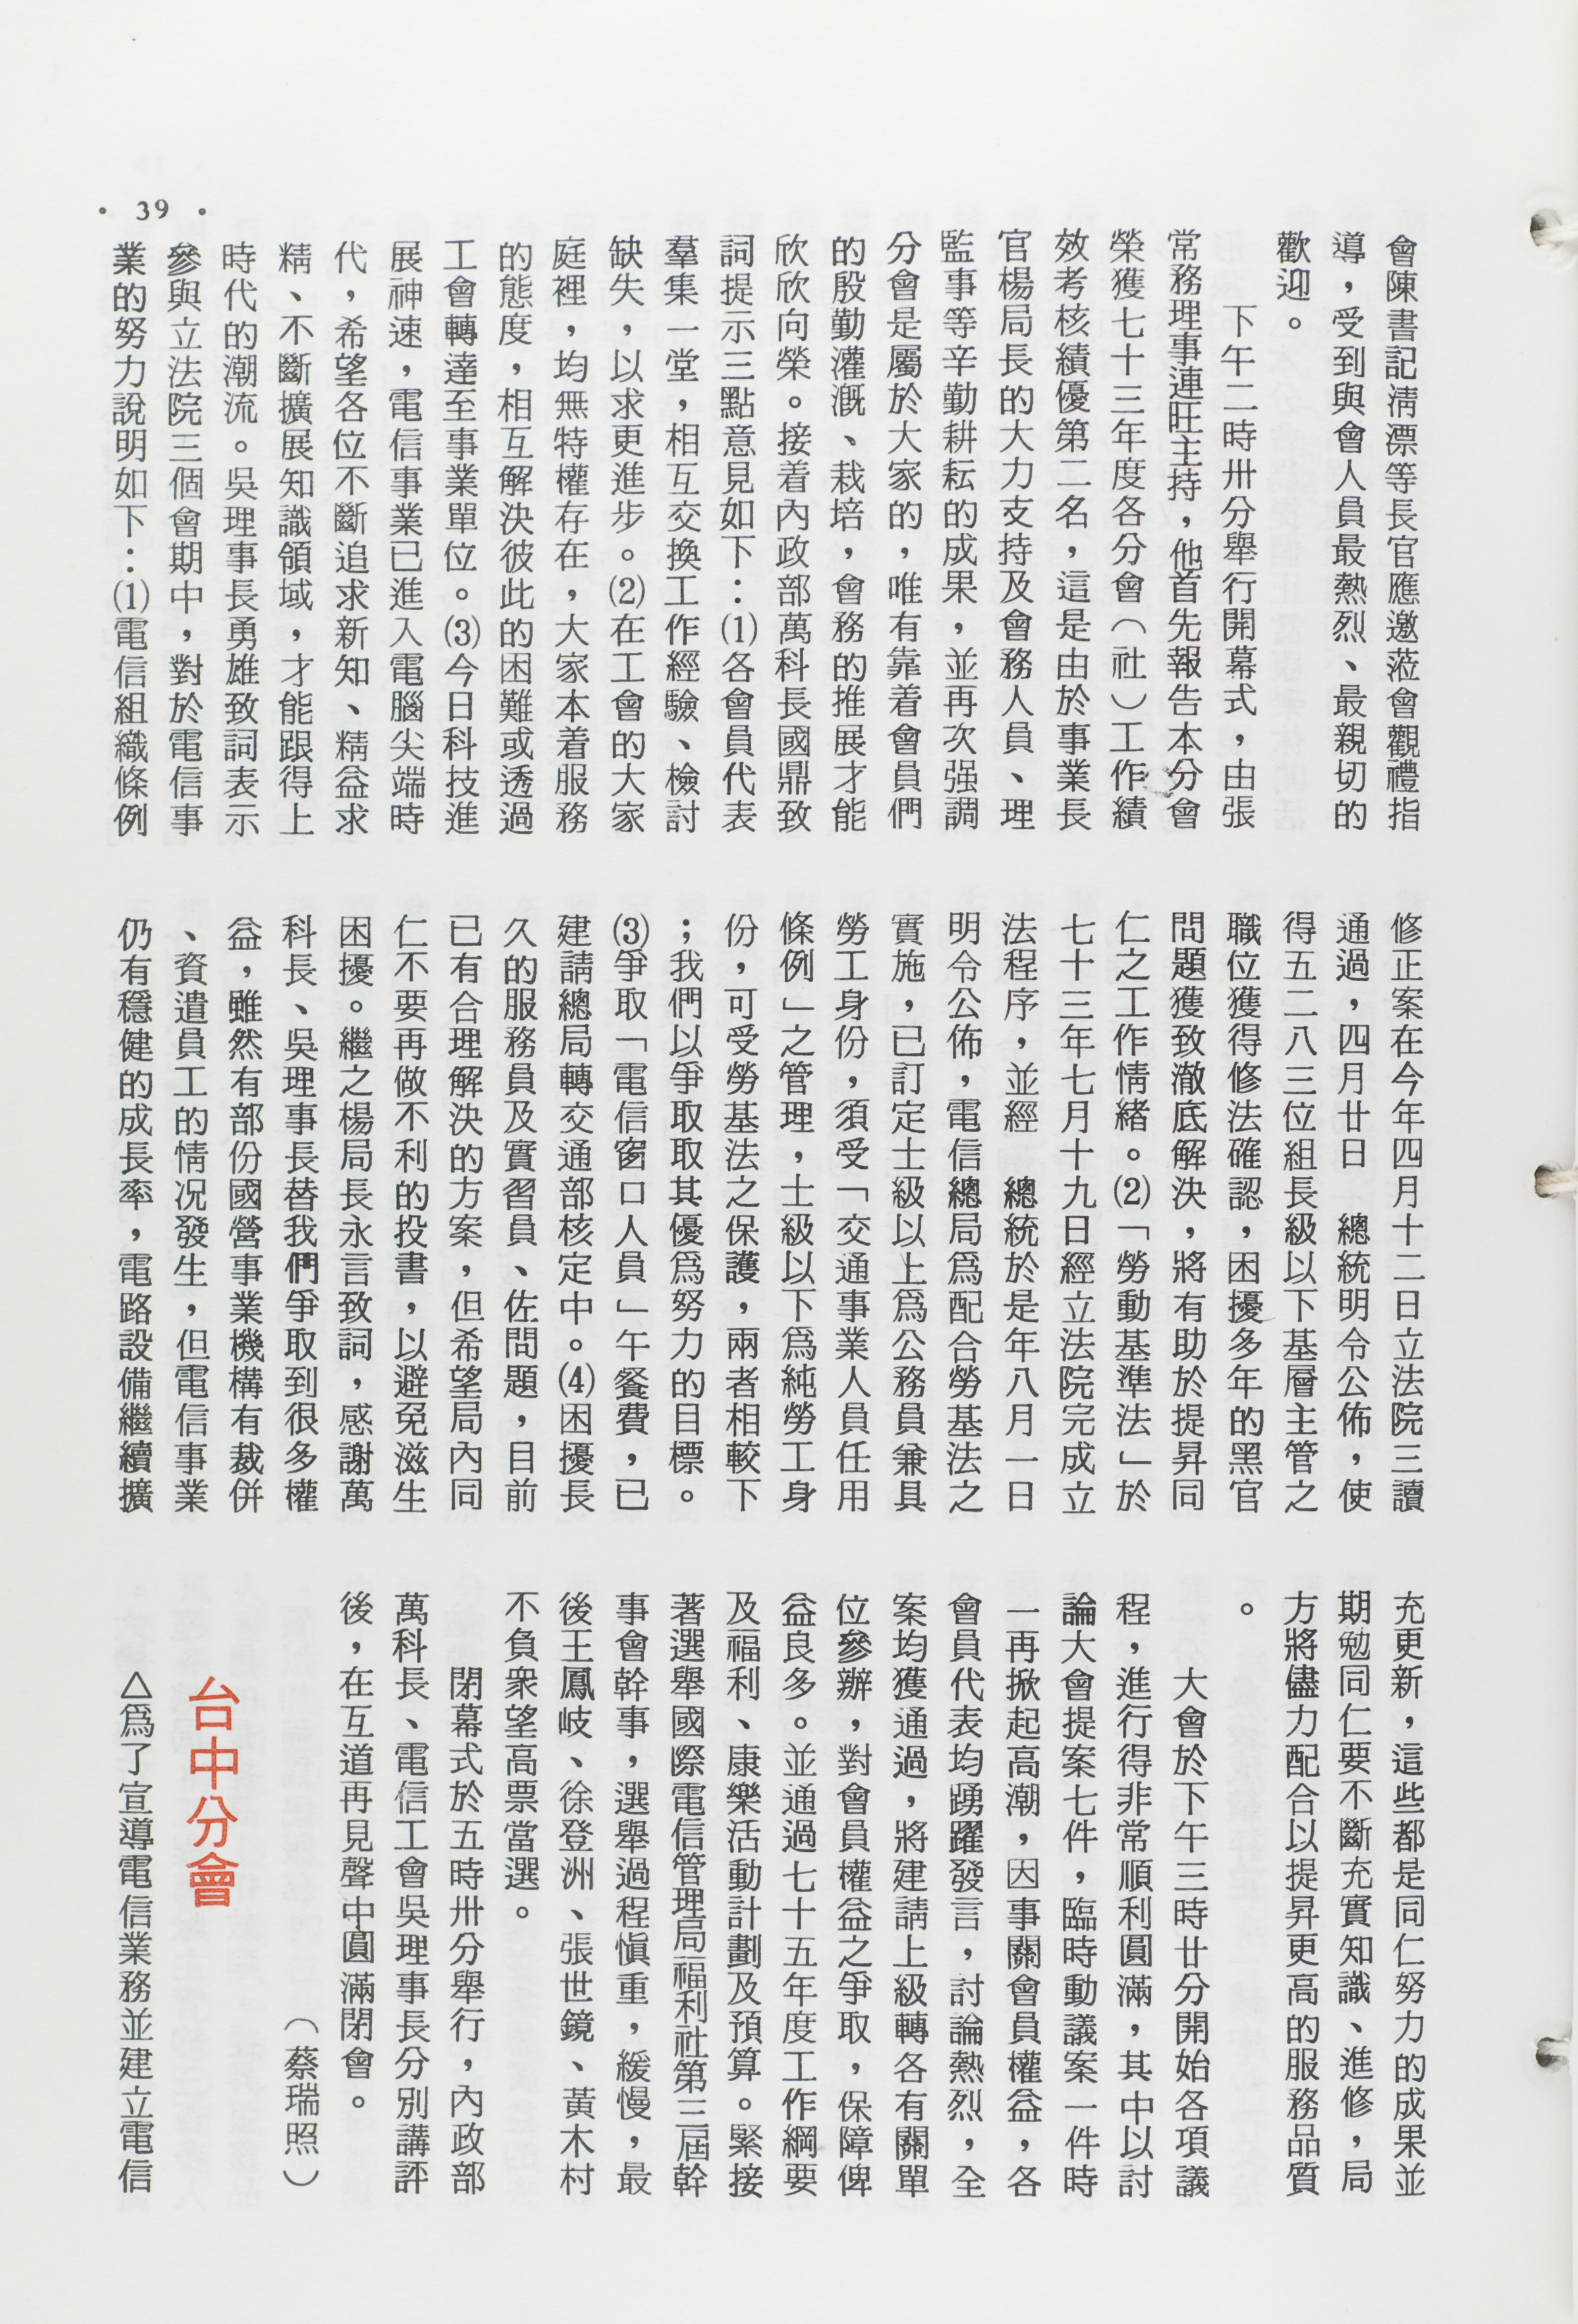 會陳書記淸漂等長官應邀蒞會觀禮指
導，受到與會人員最熱烈、最親切的
歡迎。
下午二時卅分舉行開幕式，由張
常務理事連旺主持，他首先報告本分會
榮獲七十三年度各分會（社）工作績
效考核績優第二名，這是由於事業長
官楊局長的大力支持及會務人員、理
監事等辛勤耕耘的成果，並再次强調
分會是屬於大家的，唯有靠着會員們
的殷勤灌漑、栽培，會務的推展才能
欣欣向榮。接着內政部萬科長國鼎致
詞提示三點意見如下：⑴各會員代表
羣集一堂，相互交換工作經驗、檢討
缺失，以求更進步。⑵在工會的大家
庭裡，均無特權存在，大家本着服務
的態度，相互解決彼此的困難或透過
工會轉達至事業單位。⑶今日科技進
展神速，電信事業已進入電腦尖端時
代，希望各位不斷追求新知、精益求
精、不斷擴展知識領域，才能跟得上
時代的潮流。吳理事長勇雄致詞表示
參與立法院三個會期中，對於電信事
業的努力說明如下：⑴電信組織條例
修正案在今年四月十二日立法院三讀
通過，四月廿日　總統明令公佈，使
得五二八三位組長級以下基層主管之
職位獲得修法確認，困擾多年的黑官
問題獲致澈底解決，將有助於提昇同
仁之工作情緒。⑵「勞動基準法」於
七十三年七月十九日經立法院完成立
法程序，並經　總統於是年八月一日
明令公佈，電信總局爲配合勞基法之
實施，已訂定士級以上爲公務員兼具
勞工身份，須受「交通事業人員任用
條例」之管理，士級以下爲純勞工身
份，可受勞基法之保護，兩者相較下
；我們以爭取取其優爲努力的目標。
⑶爭取「電信窗口人員」午餐費，已
建請總局轉交通部核定中。⑷困擾長
久的服務員及實習員、佐問題，目前
已有合理解決的方案，但希望局內同
仁不要再做不利的投書，以避免滋生
困擾。繼之楊局長永言致詞，感謝萬
科長、吳理事長替我們爭取到很多權
益，雖然有部份國營事業機構有裁併
、資遣員工的情况發生，但電信事業
仍有穩健的成長率，電路設備繼續擴
充更新，這些都是同仁努力的成果並
期勉同仁要不斷充實知識、進修，局
方將儘力配合以提昇更高的服務品質
。
大會於下午三時廿分開始各項議
程，進行得非常順利圓滿，其中以討
論大會提案七件，臨時動議案一件時
一再掀起高潮，因事關會員權益，各
會員代表均踴躍發言，討論熱烈，全
案均獲通過，將建請上級轉各有關單
位參辦，對會員權益之爭取，保障俾
益良多。並通過七十五年度工作綱要
及福利、康樂活動計劃及預算。緊接
著選舉國際電信管理局福利社第三屆幹
事會幹事，選舉過程愼重，緩慢，最
後王鳳岐、徐登洲、張世鏡、黃木村
不負衆望高票當選。
閉幕式於五時卅分舉行，內政部
萬科長、電信工會吳理事長分別講評
後，在互道再見聲中圓滿閉會。
（蔡瑞照）
台中分會
△爲了宣導電信業務並建立電信
• 39 •